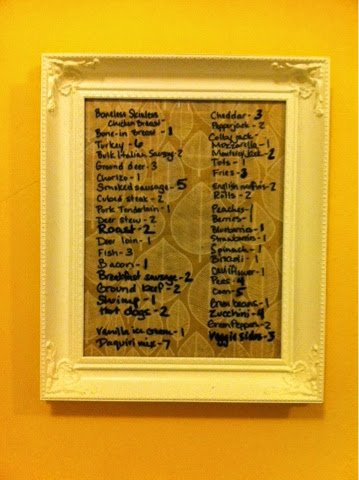 Boneless Skinless
Chicken Breast
Bone-in Breast - 1
Turkey - 6
Bulk Italian Sausage - 2
Ground deer - 3
Chorizo - 1
Smoked sausage - 5
Cubed steak - 2
Pork Tenderloin - 1
Deer stew - 2
Roast - 2
Deer loin - 1
Fish - 3
Bacon - 1
Breakfast sausage - 2
Ground beef - 2
Shrimp - 1
Hot dogs - 2
Vanilla ice cream - 1
Daquiri mix - 7
Cheddar - 3
Pepperjack - 2
Colby jack -
Mozzarella - 1
Monterey Jack - 2
Tots - 1
Fries - 3
English muffins - 2
Rolls - 2
Peaches - 1
Berries - 1
Blueberries - 1
Strawberries - 1
Spinach - 1
Broccoli - 1
Cauliflower - 1
Peas - 4
Corn - 5
Green beans - 1
Zucchini - 4
Green Peppers - 2
Veggie sides - 3